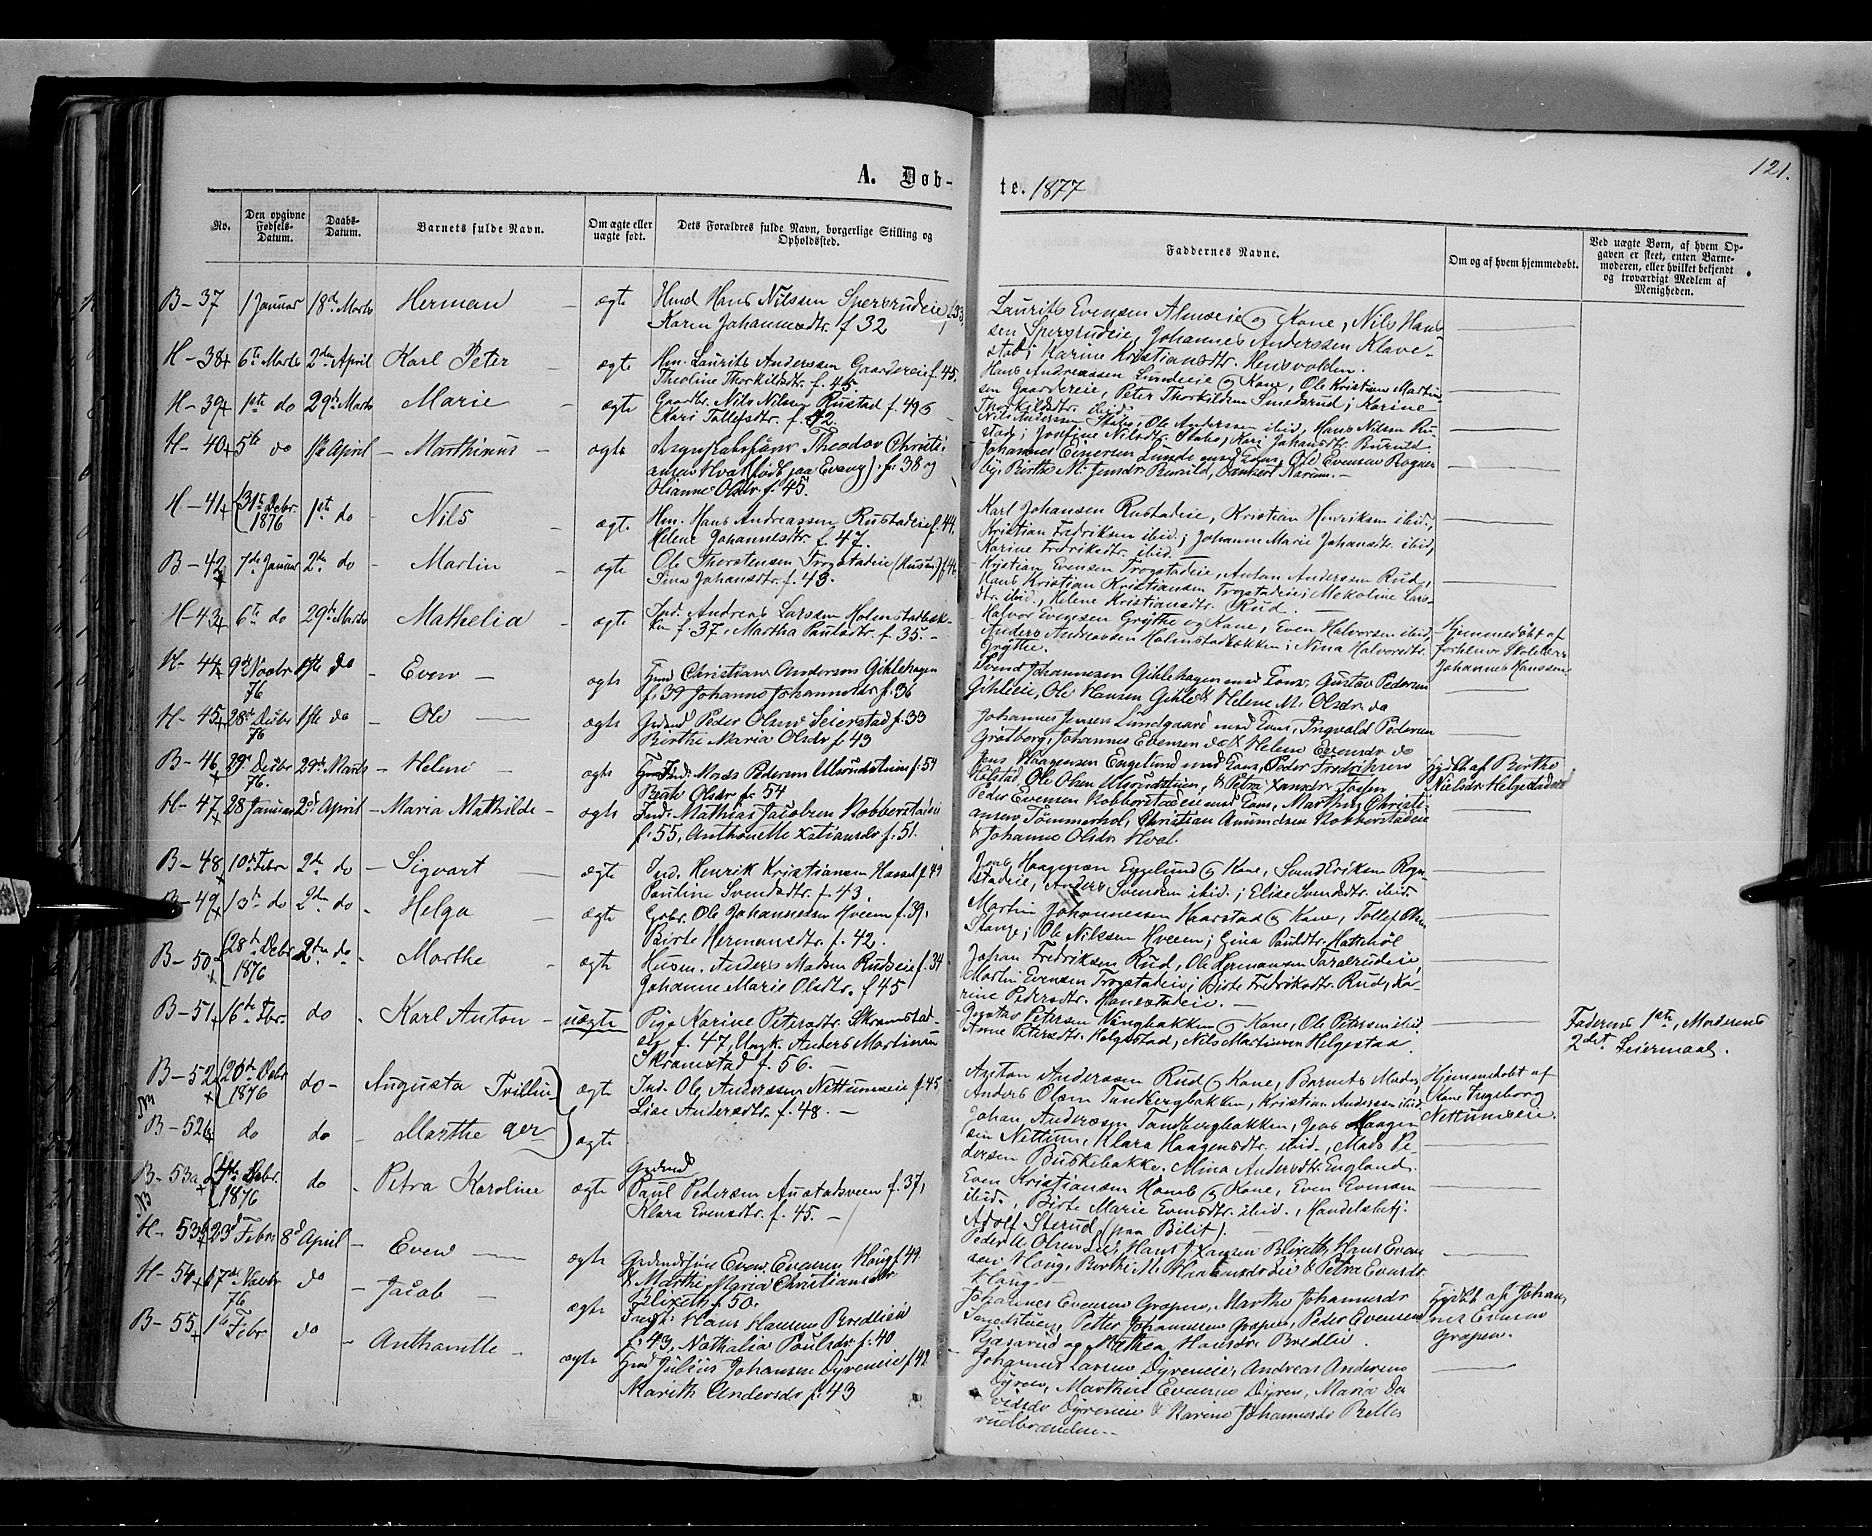 A. Døb-
te. 1877
121.
No.
Den opgivne Fødsels-Datum.
Daabs-Datum.
Barnets fulde Navn.
Om ægte eller uægte født.
Dets Forældres fulde Navn, borgerlige Stilling og Opholdssted.
Faddernes Navne.
Om og af hvem hjemmedøbt.
Ved uægte Børn, af hvem Opgaven er skeet, enten Barnemoderen, eller hvilket bekjendt og troværdigt Medlem af Menigheden.
B-37 1 Januar 18de Marts Herman ægte Hmd Hans Nilssen Spersrudeie f. 33,
Karen Johannesdtr. f 32
Laurits Evensen Almseie og Kone, Nils Hans-
sen Spersrudeie, Johannes Anderssen Klave-
stad; Karine Kristiansdtr. Hensvolden.
H-38 6te Marts 2den April Karl Peter ægte Hm. Laurits Anderssen Gaardereie f. 45,
Theoline Thorkildsdtr. f. 45.
Hans Andreassen Lundeeie og Kone, Ole Kristian Martin-
sen Gaardereie, Peter Thorkildsen Smedsrud; Karine
Thorkildsdtr. ibid
H-39 1ste do 29de Marts Marie ægte Gaardbr. Nils Nilsen Rustad f. 49 o
Kari Tollefsdtr. f. 42
Nils Andersen Stabo, Ole Andersen ibid, Hans Nilsen Ru-
stad; Josefine Nilsdtr. Stabo, Kari Johansdtr. Bururud.
H-40 5te do 1ste April Marthinus ægte Theodor Christi-
ansen Hval (født paa Evang) f. 38 og
Olianne Olsdr f. 45.
Johannes Einersen Lunde med Kone, Ole Evensen Rogner-
H-41 31te Debr 1876 1ste do Nils ægte Hm. Hans Andreassen Rustadeie f. 44,
Helene Johannesdtr. f. 47.
Karl Johansen Rustadeie, Kristian Henriksen ibid.,
Kristian Fredriksen ibid; Johanne Marie Johansdtr. ibid,
Karine Fredriksdtr. ibid.
B-42 7de Januar 2den do Martin ægte Ole Thorstensen Trogstadeie (Husm.) f 46,
Lina Johansdtr. f. 43.
Kristian Evensen Trogstadeie, Anton Anderssen Rud,
Hans Kristian Kristiansen Trogstadeie; Mekoline Lars-
dtr. ibid., Helene Kristiansdtr. Rud.
H-43 6te do 29de Marts Mathelia ægte Ind. Andreas Larssen Holmstadbak-
ken f. 37, Martha Paulsdtr. f. 35.-
Halvor Evensen Grøthe og Kone, Even Halvorsen ibid,
Anders Andreassen Holmstadbakken; Nina Halvorsdtr.
Grøthe.
Hjemmedøbt af
forhenv. Skoleholder
Johannes Hanssen
H-44 9de Novbr 76 1ste do Even ægte Hmd Christian Andersen Gihlehagen
f. 39 Johanne Johannesdr f. 36
Svend Johannessen Gihlehagen med Kone, Gustav Pedersen
Gihleeie, Ole Hansen Gihle & Helene M. Olsdr do
H-45 28de Debr 76 1ste do Ole ægte Grdmd Peder Olsen Seierstad f. 33
Birthe Maria Olsdr f. 43
Johannes Jensen Lundgaard med Kone, Ingvald Pedersen
Grøtborg, Johannes Evensen do & Helene Evensdr do
B-46 29de Debr 76. 29de Marts Helene ægte Ind. Moses Pedersen Ulsrudstuen f. 51
Beate Olsdr f. 54
Jens Haagensen Engelund med Kone, Peder Fredriksen
Holstad, Ole Olsen Ulsrudstuen,
Gjødt af Birthe
Nielsdr Helgestadeie
H-47 28 Januar 2den April Maria Mathilde ægte Ind. Mathias Jacobsen Kobberstadeie
f. 55, Anthonette Kstiansdr f. 51.
Peder Evensen Kobberstadeie med Kone, Marthin Christi-
ansen Tømmerhol, Christian Amundsen Kobberstadeie
& Johanne Olsdr Hval.
B-48 10de Febr 2den do Sigvart ægte Ind. Henrik Kristiansen Hassel f. 49
Pauline Svendsdtr. f. 43.
Jens Haagensen Engelund og Kone, Svend Eriksen Rogn-
stadeie, Anders Svendsen ibid.; Elise Svendsdtr. ibid.
B-49 13de do 2den do Helga ægte Grbr. Ole Johannessen Hveem f. 39,
Birte Hermansdtr. f. 42.
Martin Johannessen Haarstad og Kone, Tollef Olsen
Stange; Ole Nilssen Hveem; Gina Paulsdtr. Hattehøl
B-50 28de Debr 1876 2den do Marthe ægte Husm. Anders Madsen Rudseie f. 34
Johanne Marie Olsdtr. f 45
Johan Fredriksen Rud, Ole Hermansen Taralrudeie,
Martin Evensen Trogstadeie, Birte Fredriksdtr. Rud, Ka-
rine Pedersdtr. Hanestadeie. -
B-51 16de Fbr. do Karl Anton uægte Pige Karine Petersdtr. Skramstad-
eie f. 47, Ungk. Anders Martinsen
Skramstad f. 56.
Petersen Vangbakken og Kone, Ole Petersen ibid,
Anne Petersdtr. Helgestad, Nils Martinsen Helgestad.
Faderens 1ste, Moderens
2det Leiermaal.
B-52 26de Debr 1876 do Augusta Tvillin- ægte Ind. Ole Anderssen Nettumeie f. 45
Lise Andersdtr. f. 48. -
Anton Anderssen Rud og Kone, Barnets Moder,
Anders Olsen Tandbergbakken, Kristian Anderssen ibid.
Hjemmedøbt af
Kone Ingeborg
Nettumeie.
B-52b do do Marthe ger ægte
Johan Anderssen Tandbergbakken, Jens Haagen-
sen Nettum, Klara Haagensdtr. ibid., Mads Pe-
dersen Buskebakke. Mina Andersdtr. England.
B-53a 4de Debr. 1876 do Petra Karoline ægte Grdmd
Paul Pedersen Austadsveen f. 37,
Klara Evensdtr. f. 45. -
Even Kristiansen Homb og Kone, Even Evensen
ibid., Birte Marie Evensdtr. ibid., Handelsbetj.
Adolf Sterud (paa Bilit).
H-53b 23de Febr. 8de April Even ægte Grdmdssøn Even Evensen Houg f 49
& Marthe Maria Christiansdr
Blixeth f. 50.
Peder U. Olsen Lie, Hans J. Hansen Blixeth, Hans Even-
sen Houg,
Houg.
H-54 17de Novbr 76 do Jacob ægte Hans Hansen Bredlien
f. 43, Nathalia Poulsdr f. 40
Johannes Evensen Grøpen, Marthe Johannesdr
Petter Johannesen Grøpen, Peder Evensen
Bjæsrud og Mathea Hansdr. Bredlie.
Gjødt af Johan-
nes Evensen
Grøpen.
B-55 1ste Febr do Anthonette ægte Hmd Julius Johansen Dyreneie f 42
Marith Andersdr f. 43
Johannes Larsen Dyreneie, Andreas Andersen
Dyren, Marthin Evensen Dyren, Maria Da-
vidsdr Dyreneie & Karine Johannesdr Belle-
rudbraaden.-